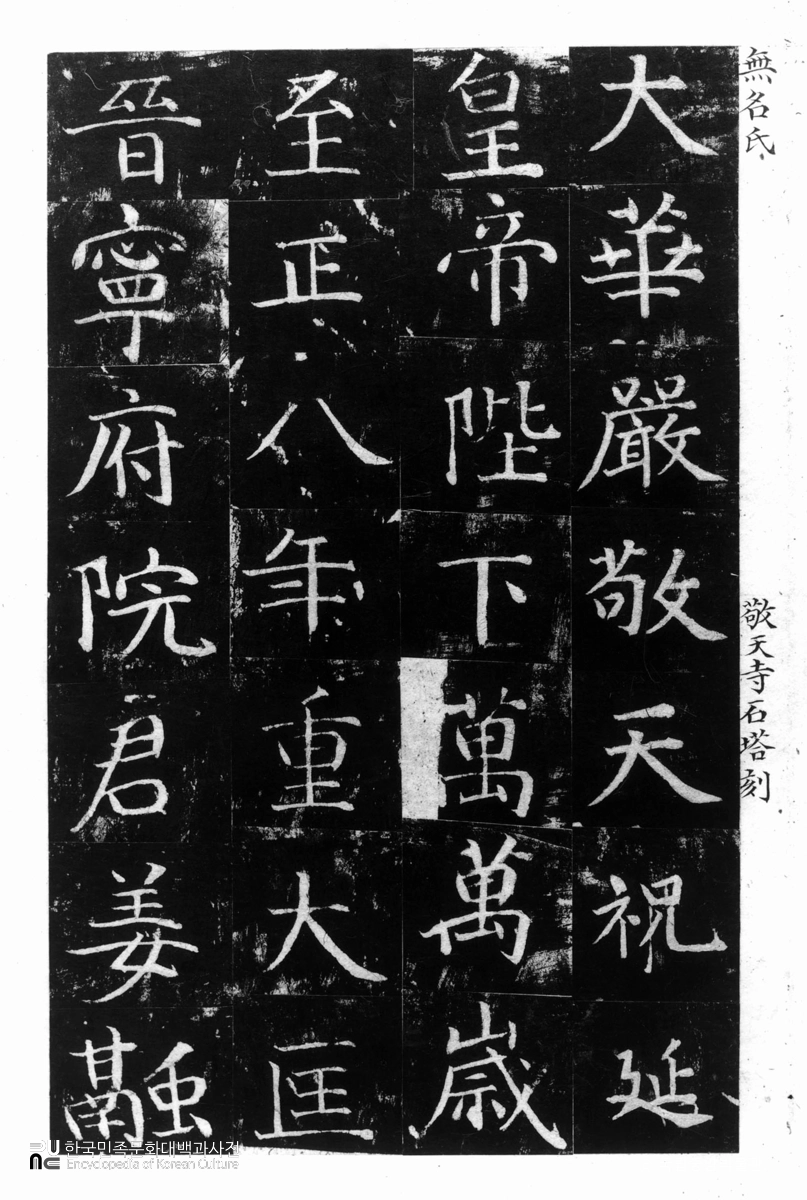 無名氏 敬天寺石塔刻
大華嚴敬天祝延
皇帝陛下萬萬歲
至正八年重大匡
晉寧府院君姜融
한국민족문화대백과사전
Encyclopedia of Korean Culture